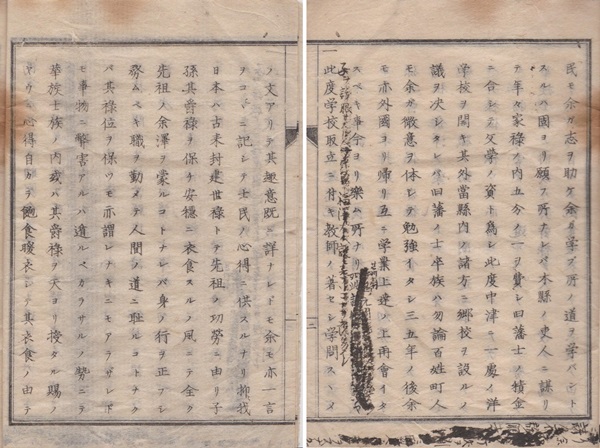 民モ余ガ志ヲ助ケ余ガ学ブ所ノ道ヲ学バント
スルハ固ヨリ願フ所ナレバ本縣ノ吏人ニ謀リ
テ年々家禄ノ内五分ノ一ヲ費シ旧藩士ノ積金
ニ合シテ文學ノ資ト為シ此度中津ニ一處ノ洋
学校ヲ開キ其外當縣内ノ諸方ニ郷校ヲ設ルノ
議ヲ决シタレバ旧藩ノ士卒族ハ勿論百姓町人
モ余ガ微意ヲ体シテ勉強イタシ三五年ノ後余
モ亦外國ヨリ帰リ互ニ學業上達ノ上再會イタ
スベキ事今ヨリ樂ム所ナリ
一此度学校取立ニ付キ教師ノ著セシ学問スヽメ
ノ文アリテ其趣意既ニ詳ナレドモ余モ亦一言
ヲコヽニ記シテ士民ノ心得ニ供スルナリ抑我
日本ハ古来封建世禄トテ先祖ノ功勞ニ由リ子
孫其爵禄ヲ保チ安穏ニ衣食スルノ風ニテ全ク
先祖ノ余澤ヲ蒙ルコトナレバ身ノ行ヲ正フシ
務ムベキ職ヲ勤メテ人間ノ道ニ耻ルコトナク
バ其禄位ヲ保ツモ亦謂レナキニモアラザレド
モ事物ニ弊害アルハ遁ルベカラザルノ勢ニテ
華族士族ノ内或バ其爵禄ヲ天ヨリ授タル賜ノ
ヤウニ心得自カラ飽食暖衣シテ其衣食ノ由テ